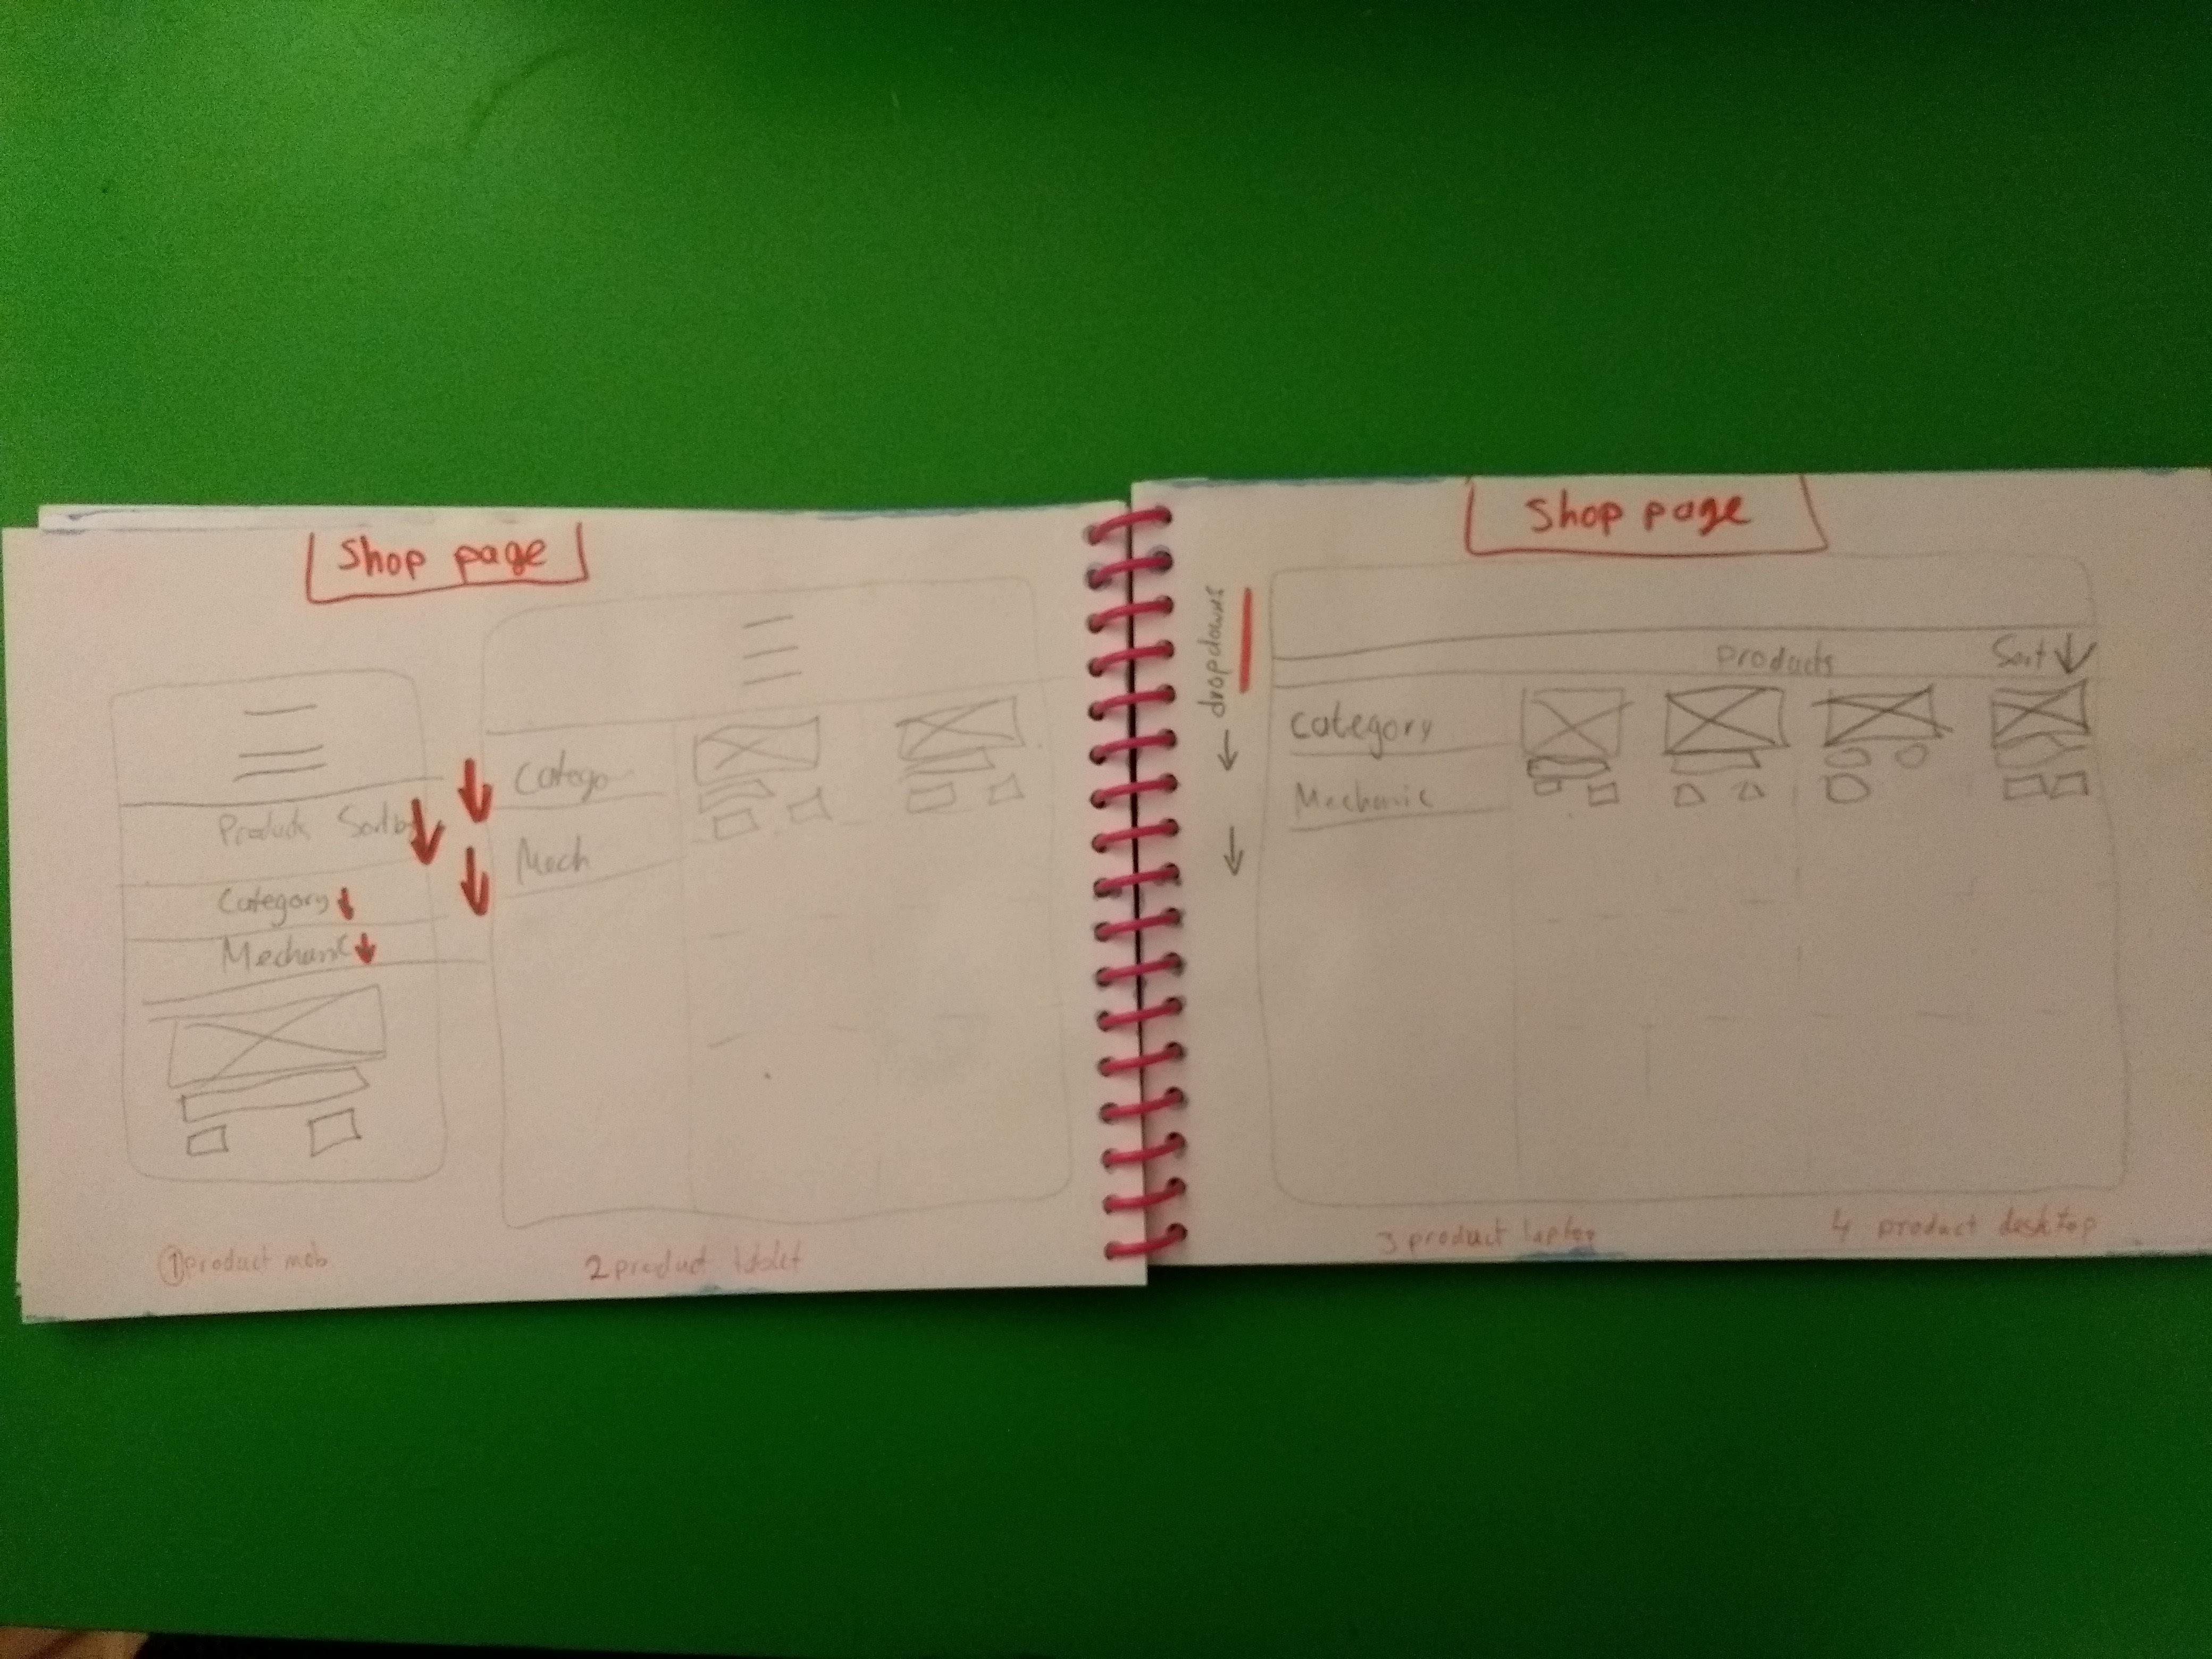 Shop page
Products Sort by
Category
Mechanic
Catego
Mech
1 product mob
2 product tablet
Shop page
dropdowns
products Sort
Category
Mechanic
3 product laptop
4 product desktop